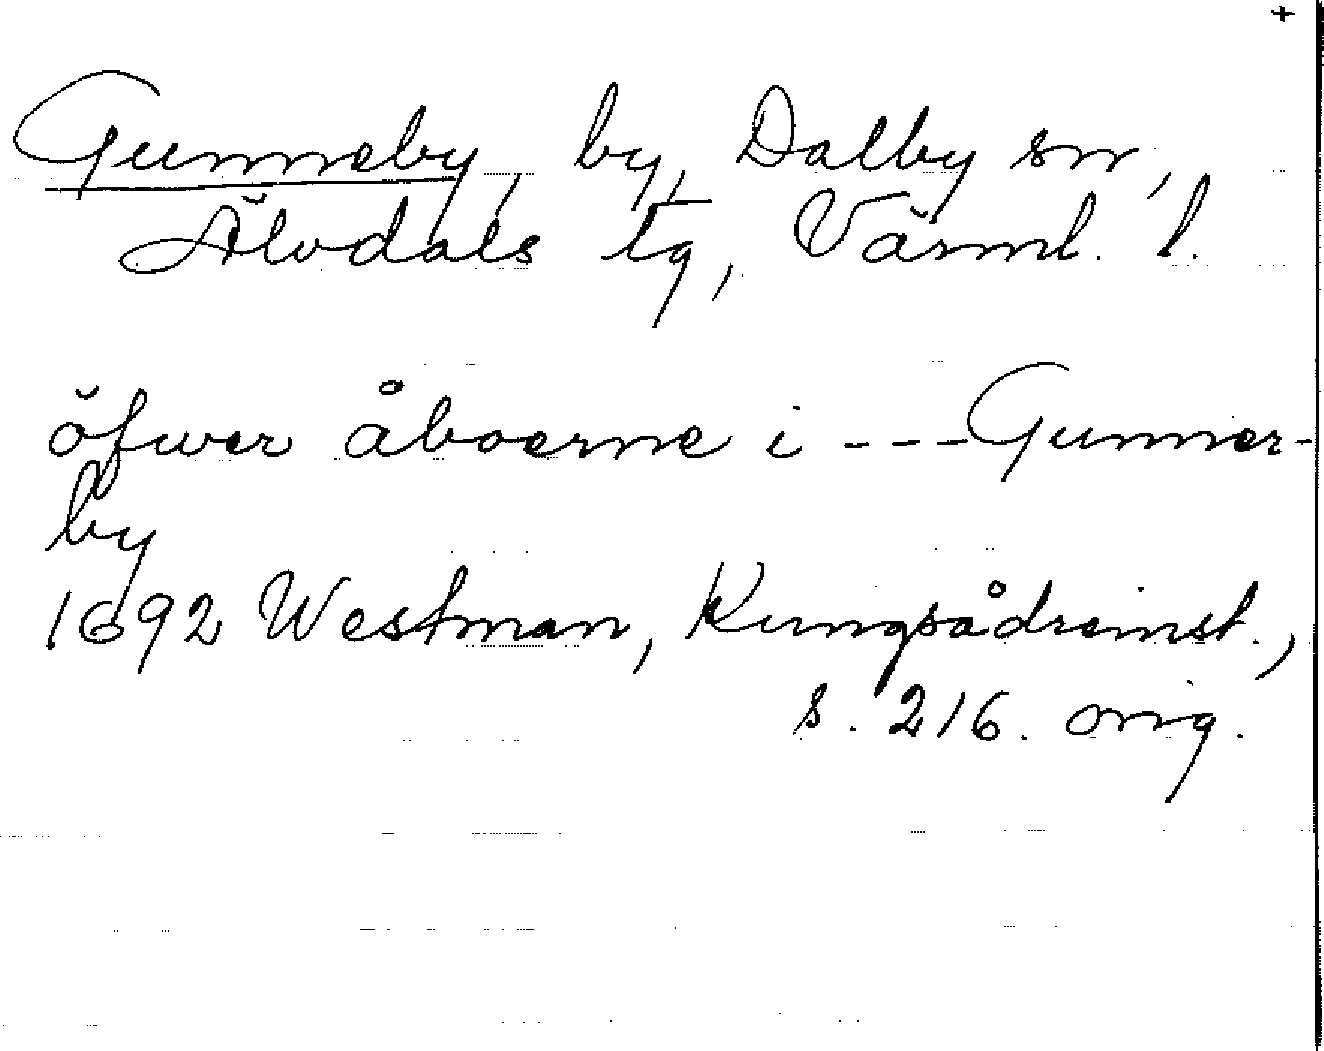 +
Gunneby, by, Dalby sn,
Älvdals tg, Värml. l.
öfwer åboerne i ---Gunner-
by
1692 Westman, Kungsådreinst.,
s. 216. orig.